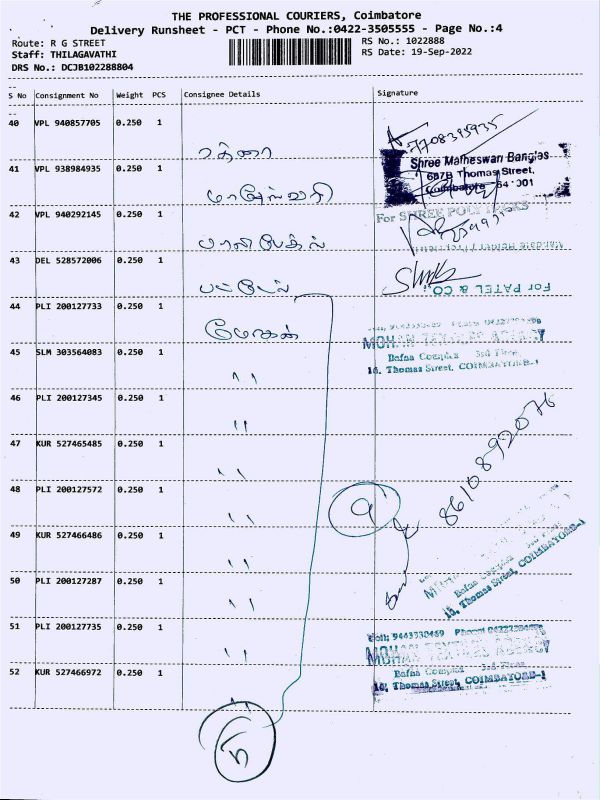 THE PROFESSIONAL COURIERS, Coimbatore
Delivery Runsheet - PCT - Phone No.:0422-3505555 - Page No.:4
Route: R G STREET
RS No.: 1022888
Staff: THILAGAVATHI
RS Date: 19-Sep-2022
DRS No.: DCJB102288804
S No Consignment No Weight PCS Consignee Details Signature
40 VPL 940857705 0.250 1
7708395935
41 VPL 938984935 0.250 1 மாஹேஸ்வரி
Shree Maheswari Bangles
687B Thomas Street,
Coimbatore - 641 001
42 VPL 940292145 0.250 1 பாலிபேக்ஸ்
For SHREE POLYPACKS
43 DEL 528572006 0.250 1 பட்டேல்
For PATEL & CO.,
44 PLI 200127733 0.250 1 மோகன்
MOHAN TEXTILE AGENCY
Bafna Complex 3rd Floor,
16, Thomas Street, COIMBATORE-1
45 SLM 303564083 0.250 1 "
46 PLI 200127345 0.250 1 "
47 KUR 527465485 0.250 1 "
8610892076
48 PLI 200127572 0.250 1 "
9
49 KUR 527466486 0.250 1 "
Bafna Complex 3rd Floor
16, Thomas Street, COIMBATORE-1
50 PLI 200127287 0.250 1 "
51 PLI 200127735 0.250 1 "
Cell: 9443330469
MOHAN TEXTILE AGENCY
52 KUR 527466972 0.250 1 "
Bafna Complex 3rd Floor
16, Thomas Street, COIMBATORE-1